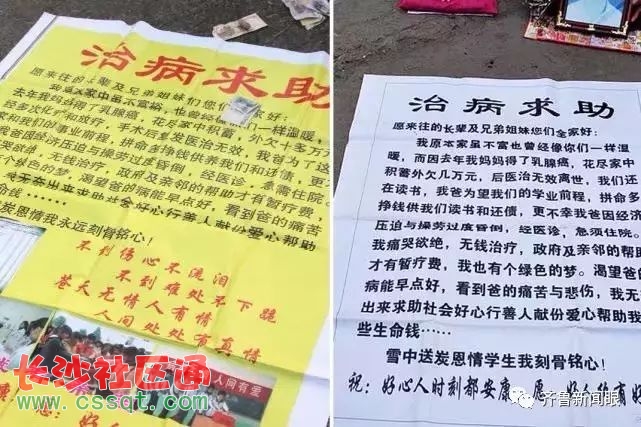 治病求助
愿来往的长辈及兄弟姐妹们您们 好：
家中虽不富裕，也曾 你们一样温暖，
去年我妈妈得了乳腺癌，花尽家中积蓄，外欠十多万
经多次化疗和放疗，手术后复发医治无效，我爸为了这
家和我们的事业前程，拼命多挣钱供养我们和还债，更不
压迫与操劳过度昏倒，经医诊，急需住院。
哭欲绝，无钱治疗，政府及亲邻的帮助才有暂疗费，
个绿色的梦。渴望爸的病能早点好，看到爸的痛苦
出来求助社会好心行善人献份爱心帮助
命钱……
恩情我永远刻骨铭心！
不到伤心不流泪
不到难处不下跪
苍天无情人有情
人间处处有真情
人间有爱
长沙社区通
www.cssqt.com
治病求助
愿来往的长辈及兄弟姐妹您们全家好：
我原本家虽不富也曾经像你们一样温
暖，而因去年我妈妈得了乳腺癌，花尽家中
积蓄外欠几万元，后医治无效离世，我们还
在读书，我爸为望我们的学业前程，拼命多
挣钱供我们读书和还债，更不幸我爸因经济
压迫与操劳过度昏倒，经医诊，急须住院。
我痛哭欲绝，无钱治疗，政府及亲邻的帮助
才有暂疗费，我也有个绿色的梦。渴望爸的
病能早点好，看到爸的痛苦与悲伤，我无
出来求助社会好心行善人献份爱心帮助我
些生命钱……
雪中送炭恩情学生我刻骨铭心！
祝：好心人时刻都安康 愿 好人能有好
齐鲁新闻眼